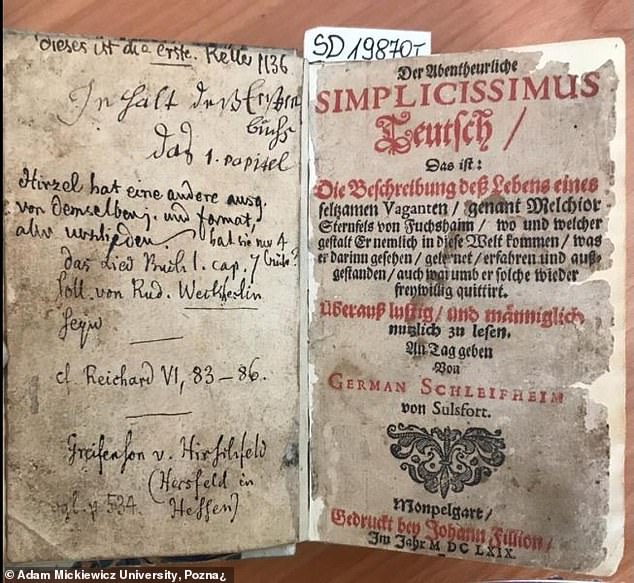 dieses ist die erste. Keller 1136
Inhalt deß Ersten
buchs
das 1. capitel
Hirzel hat eine andere ausg.
von demselben j. und format,
aber verschieden. hat sie nur 4
das Lied Buch 1. cap. 7
soll. von Rud. Weckherlin
seyn
cf. Reichard VI, 83–86.
Greifenson v. Hirschfeld
(Hersfeld in
vgl. p. 534. Hessen)
SD 19870 I
Der Abentheurliche
SIMPLICISSIMUS
Teutsch /
Das ist:
Die Beschreibung deß Lebens eines
seltzamen Vaganten / genant Melchior
Sternfels von Fuchshaim / wo und welcher
gestalt Er nemlich in diese Welt kommen / was
er darinn gesehen / gelernet / erfahren und auß-
gestanden / auch warumb er solche wieder
freywillig quittirt.
Überauß lustig / und männiglich
nutzlich zu lesen.
An Tag geben
Von
GERMAN SCHLEIFHEIM
von Sulsfort.
Monpelgart /
Gedruckt bey Johann Fillion /
Im Jahr M DC LXIX.
© Adam Mickiewicz University, Pozna¿